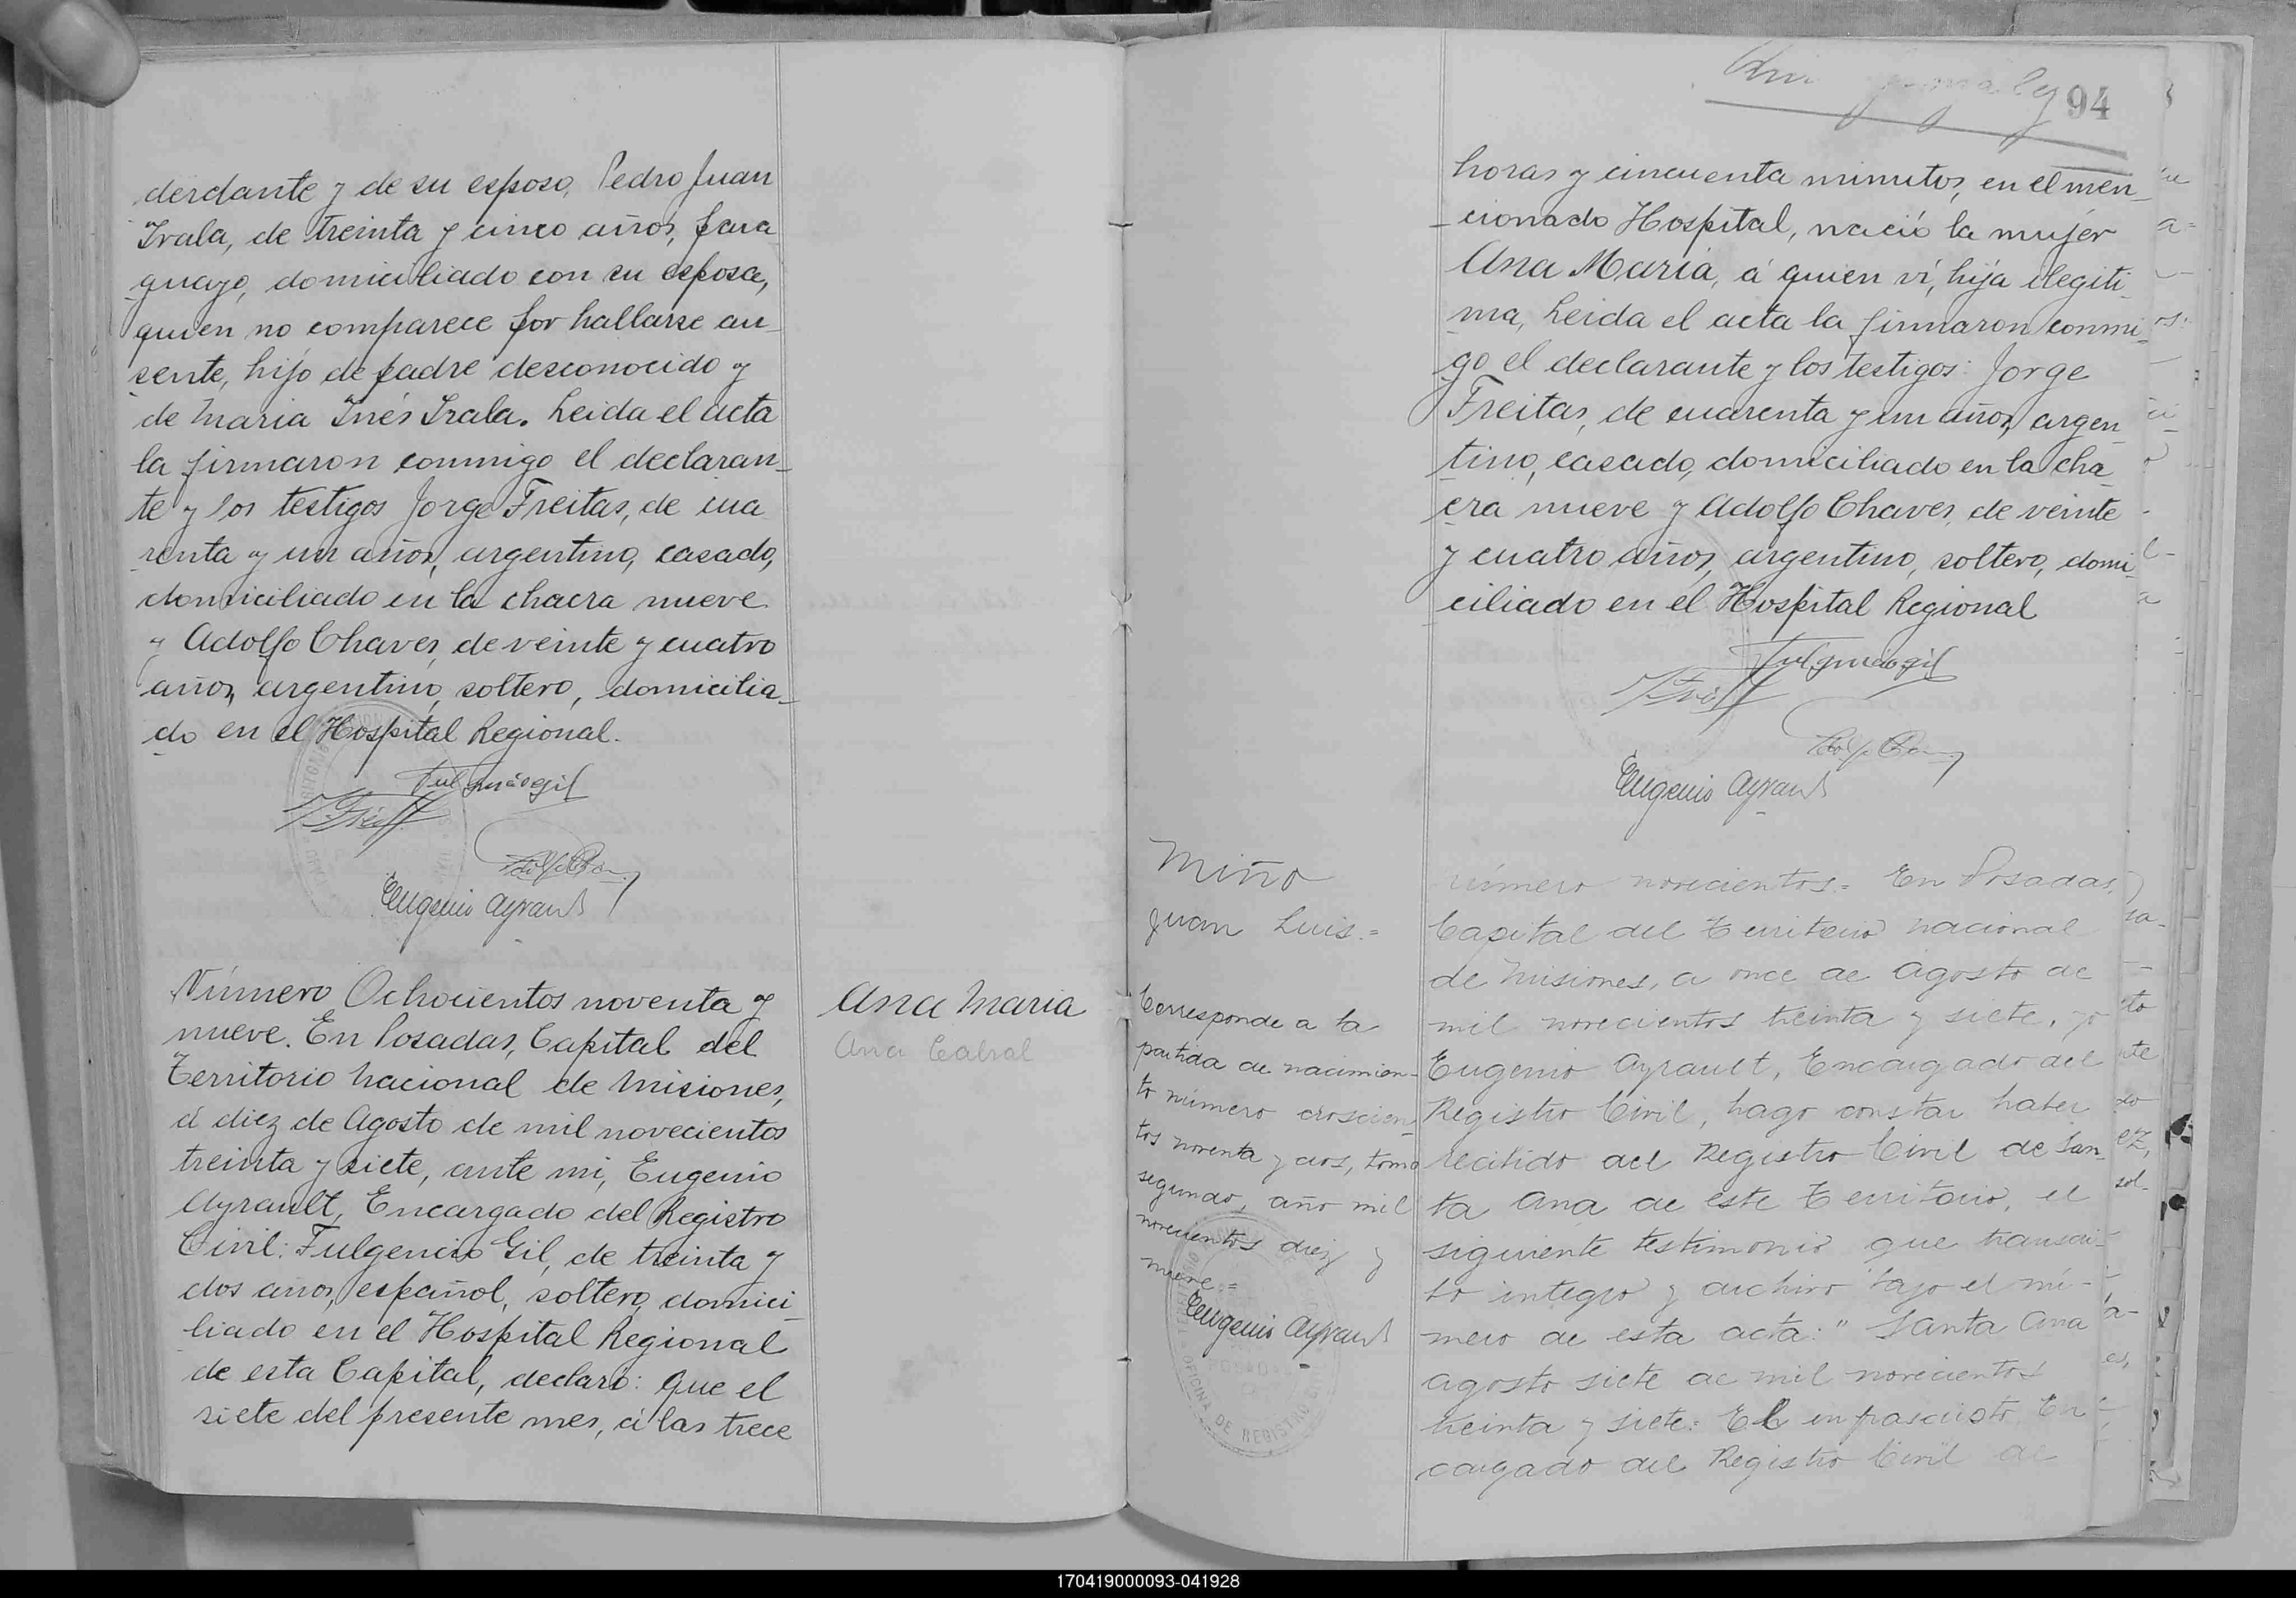 derdante y de su esposo, Pedro Juan
Irala, de treinta y cinco años, para
guayo, domiciliado con su esposa,
quien no comparece por hallarse au-
sente, hijo de padre desconocido y
de Maria Inés Irala. Leida el acta
la firmaron conmigo el declaran-
te y los testigos Jorge Freitas, de cua
renta y un años, argentino, casado,
domiciliado en la chacra nueve
y Adolfo Chaves, de veinte y cuatro
años, argentino, soltero, domicilia-
do en el Hospital Regional.
Eugenio Ayrault
Número Ochocientos noventa y
nueve. En Posadas, Capital del
Territorio Nacional de Misiones,
á diez de Agosto de mil novecientos
treinta y siete, ante mi, Eugenio
Ayrault, Encargado del Registro
Civil: Fulgencio Gil, de treinta y
dos años, español, soltero, domici-
liado en el Hospital Regional
de esta Capital, declaró: Que el
siete del presente mes, á las trece
Ana Maria
Ana Cabral
94
horas y cincuenta minutos, en el men-
-cionado Hospital, nació la mujer
Ana María, á quien ví, hija ilegiti-
ma, Leida el acta la firmaron conmi-
go el declarante y los testigos: Jorge
Freitas, de cuarenta y un años, argen-
tino, casado, domiciliado en la cha
cra nueve y Adolfo Chaves, de veinte
y cuatro años, argentino, soltero, domi-
ciliado en el Hospital Regional
Eugenio Ayrault
Miño
Juan Luis.=
Corresponde a la
partida de nacimien-
to número doscien-
tos noventa y dos, tomo
segundo, año mil
novecientos diez y
nueve=
Eugenio Ayrault
OFICINA DE REGISTRO
Número novecientos.= En Posadas,
Capital del Territorio nacional
de Misiones, a once de Agosto de
mil novecientos treinta y siete, yo
Eugenio Ayrault, Encargado del
Registro Civil, hago constar haber
recibido del Registro Civil de San-
ta Ana de este Territorio, el
siguiente testimonio que transcri-
bo integro y archivo bajo el nú-
mero de esta acta: " Santa Ana
agosto siete de mil novecientos
treinta y siete: El infrascripto En
cargado del Registro Civil de
170419000093-041928